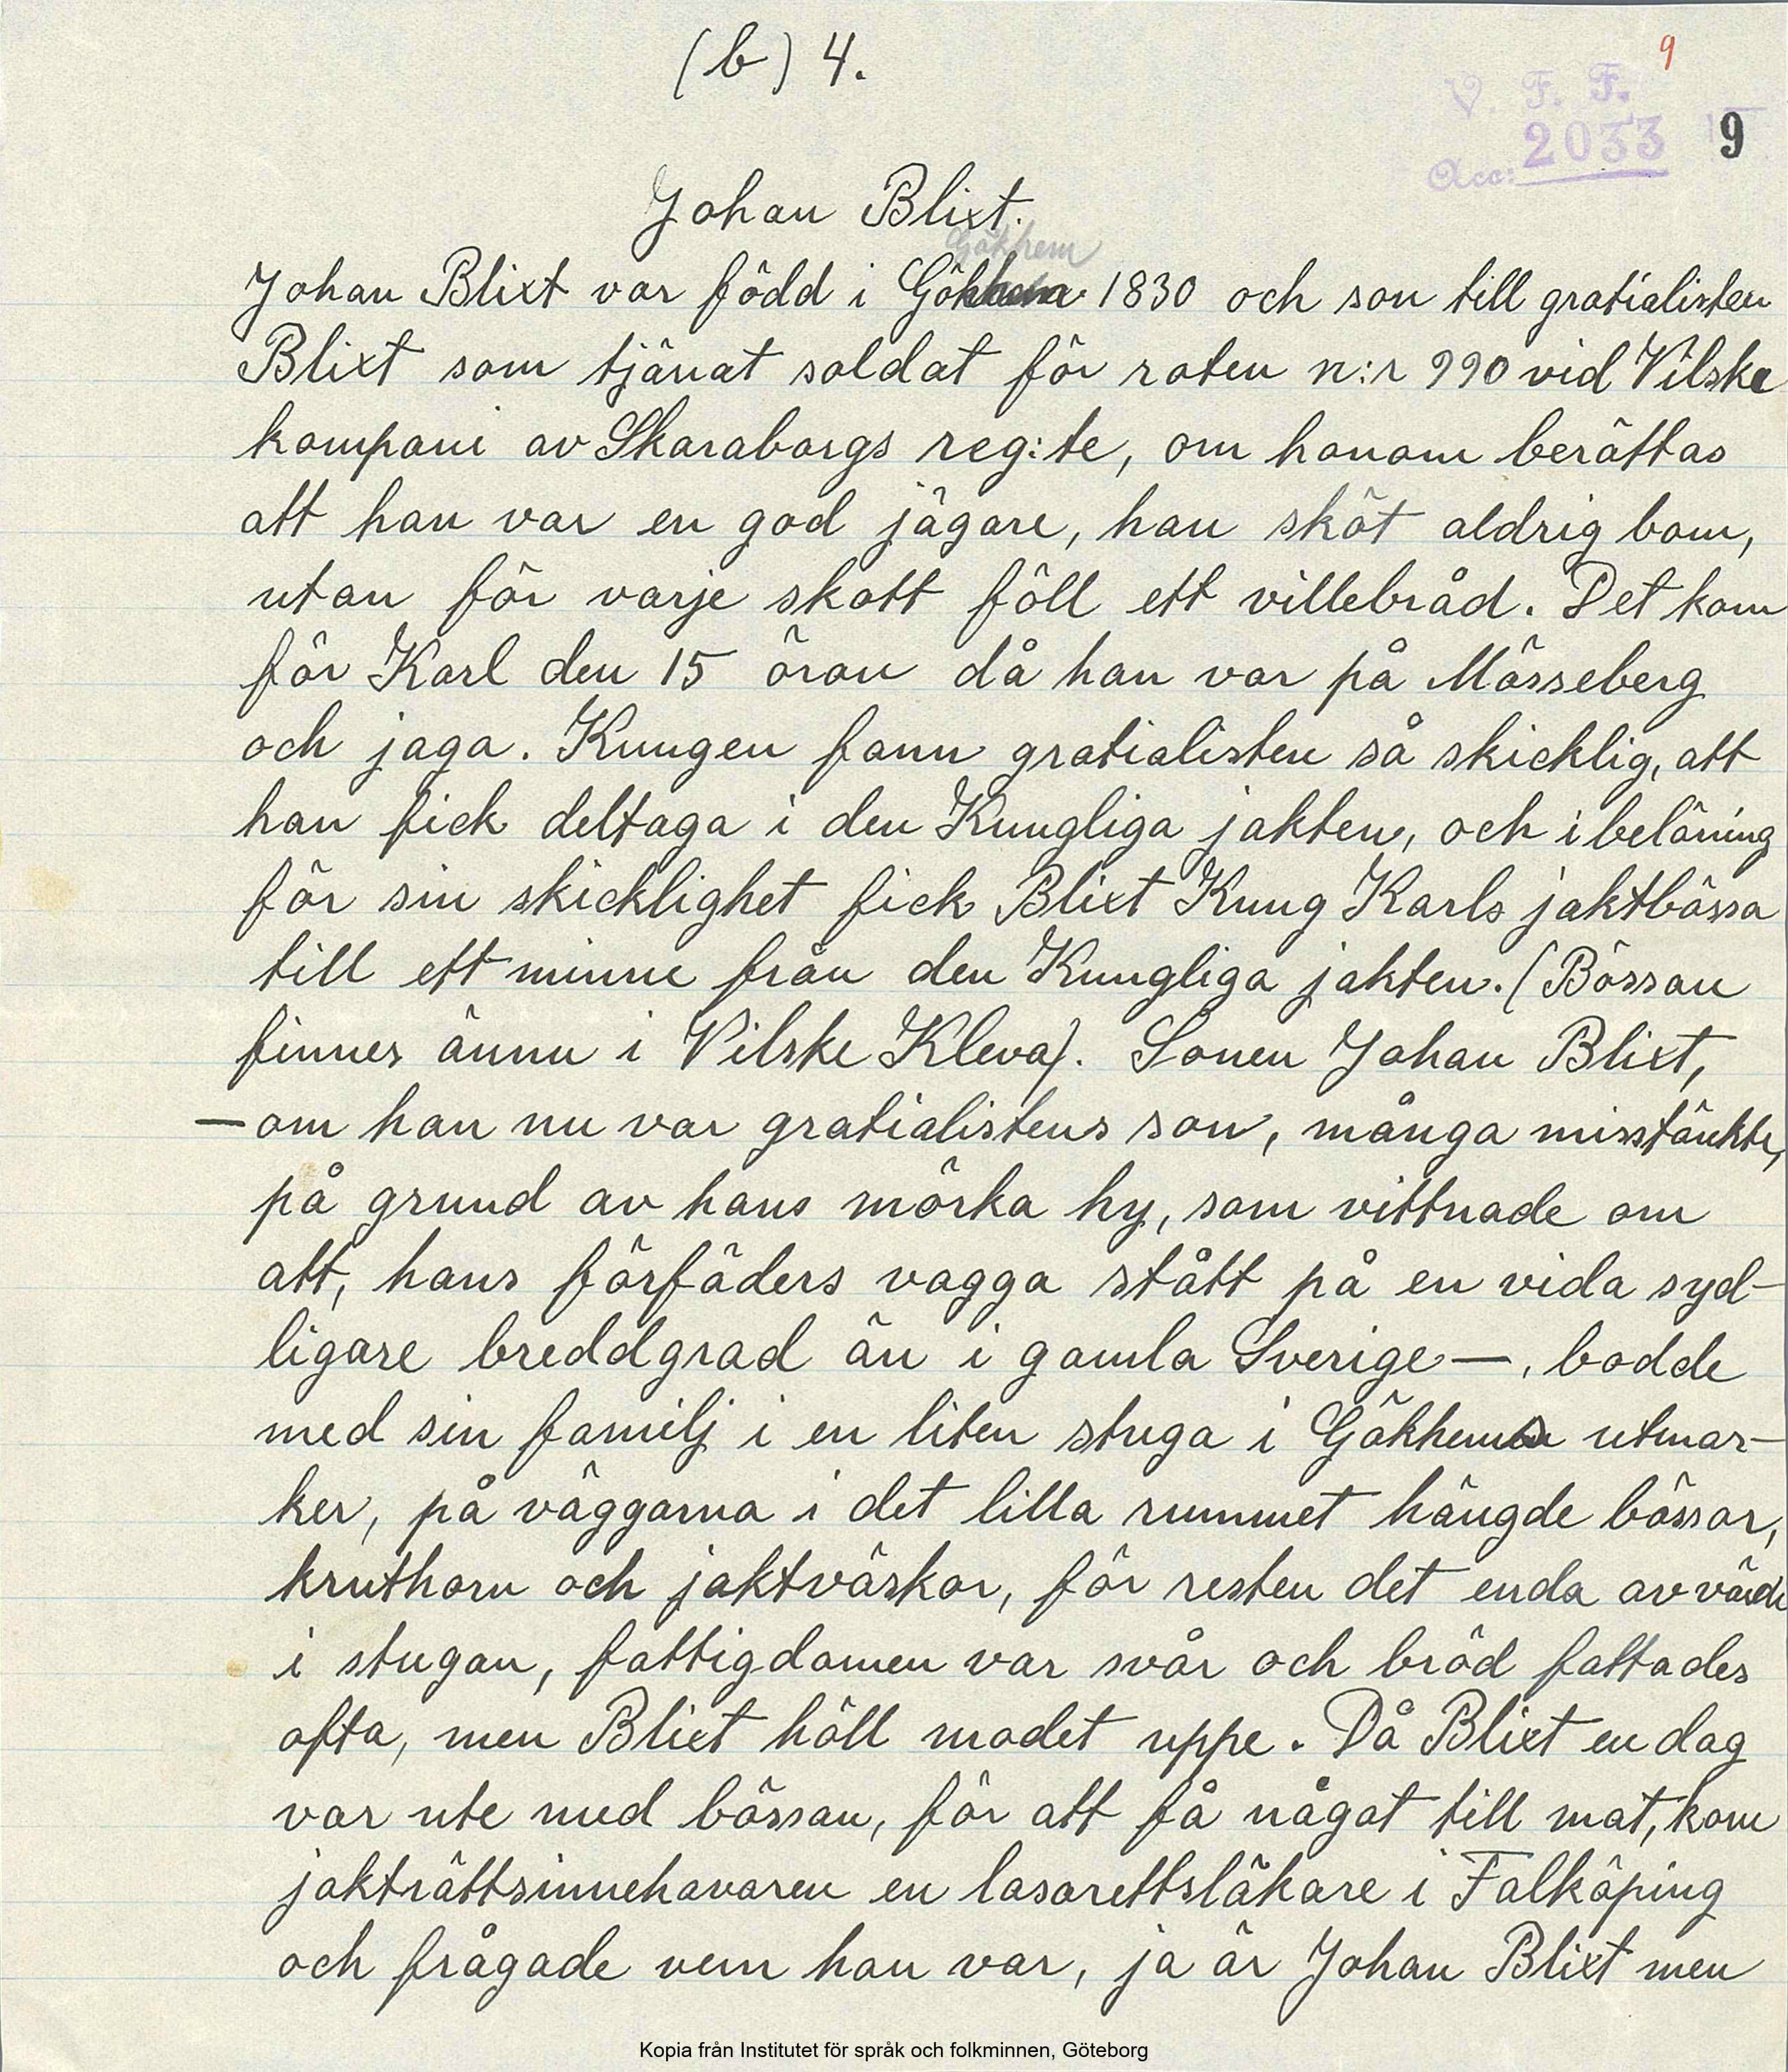 (b) 4.
9
V. F. F.
Acc: 2033
9
Johan Blixt.
Gökhem
Johan Blixt var född i Gökhem 1830 och son till gratialisten
Blixt som tjänat soldat för roten n:r 990 vid Vilske
kompani av Skaraborgs reg:te, om honom berättas
att han var en god jägare, han sköt aldrig bom,
utan för varje skott föll ett villebråd. Det kom
för Karl den 15 öron då han var på Mösseberg
och jaga. Kungen fann gratialisten så skicklig, att
han fick deltaga i den Kungliga jakten, och i belöning
för sin skicklighet fick Blixt Kung Karls jaktbössa
till ett minne från den Kungliga jakten. (Bössan
finnes ännu i Vilske Kleva). Sonen Johan Blixt,
— om han nu var gratialistens son, många misstänkte,
på grund av hans mörka hy, som vittnade om
att, hans förfäders vagga stått på en vida syd-
ligare breddgrad än i gamla Sverige —, bodde
med sin familj i en liten stuga i Gökhems utmar-
ker, på väggarna i det lilla rummet hängde bössor,
kruthorn och jaktväskor, för resten det enda av värde
i stugan, fattigdomen var svår och bröd fattades
ofta, men Blixt höll modet uppe. Då Blixt en dag
var ute med bössan, för att få något till mat, kom
jakträttsinnehavaren en lasarettsläkare i Falköping
och frågade vem han var, ja är Johan Blixt men
Kopia från Institutet för språk och folkminnen, Göteborg